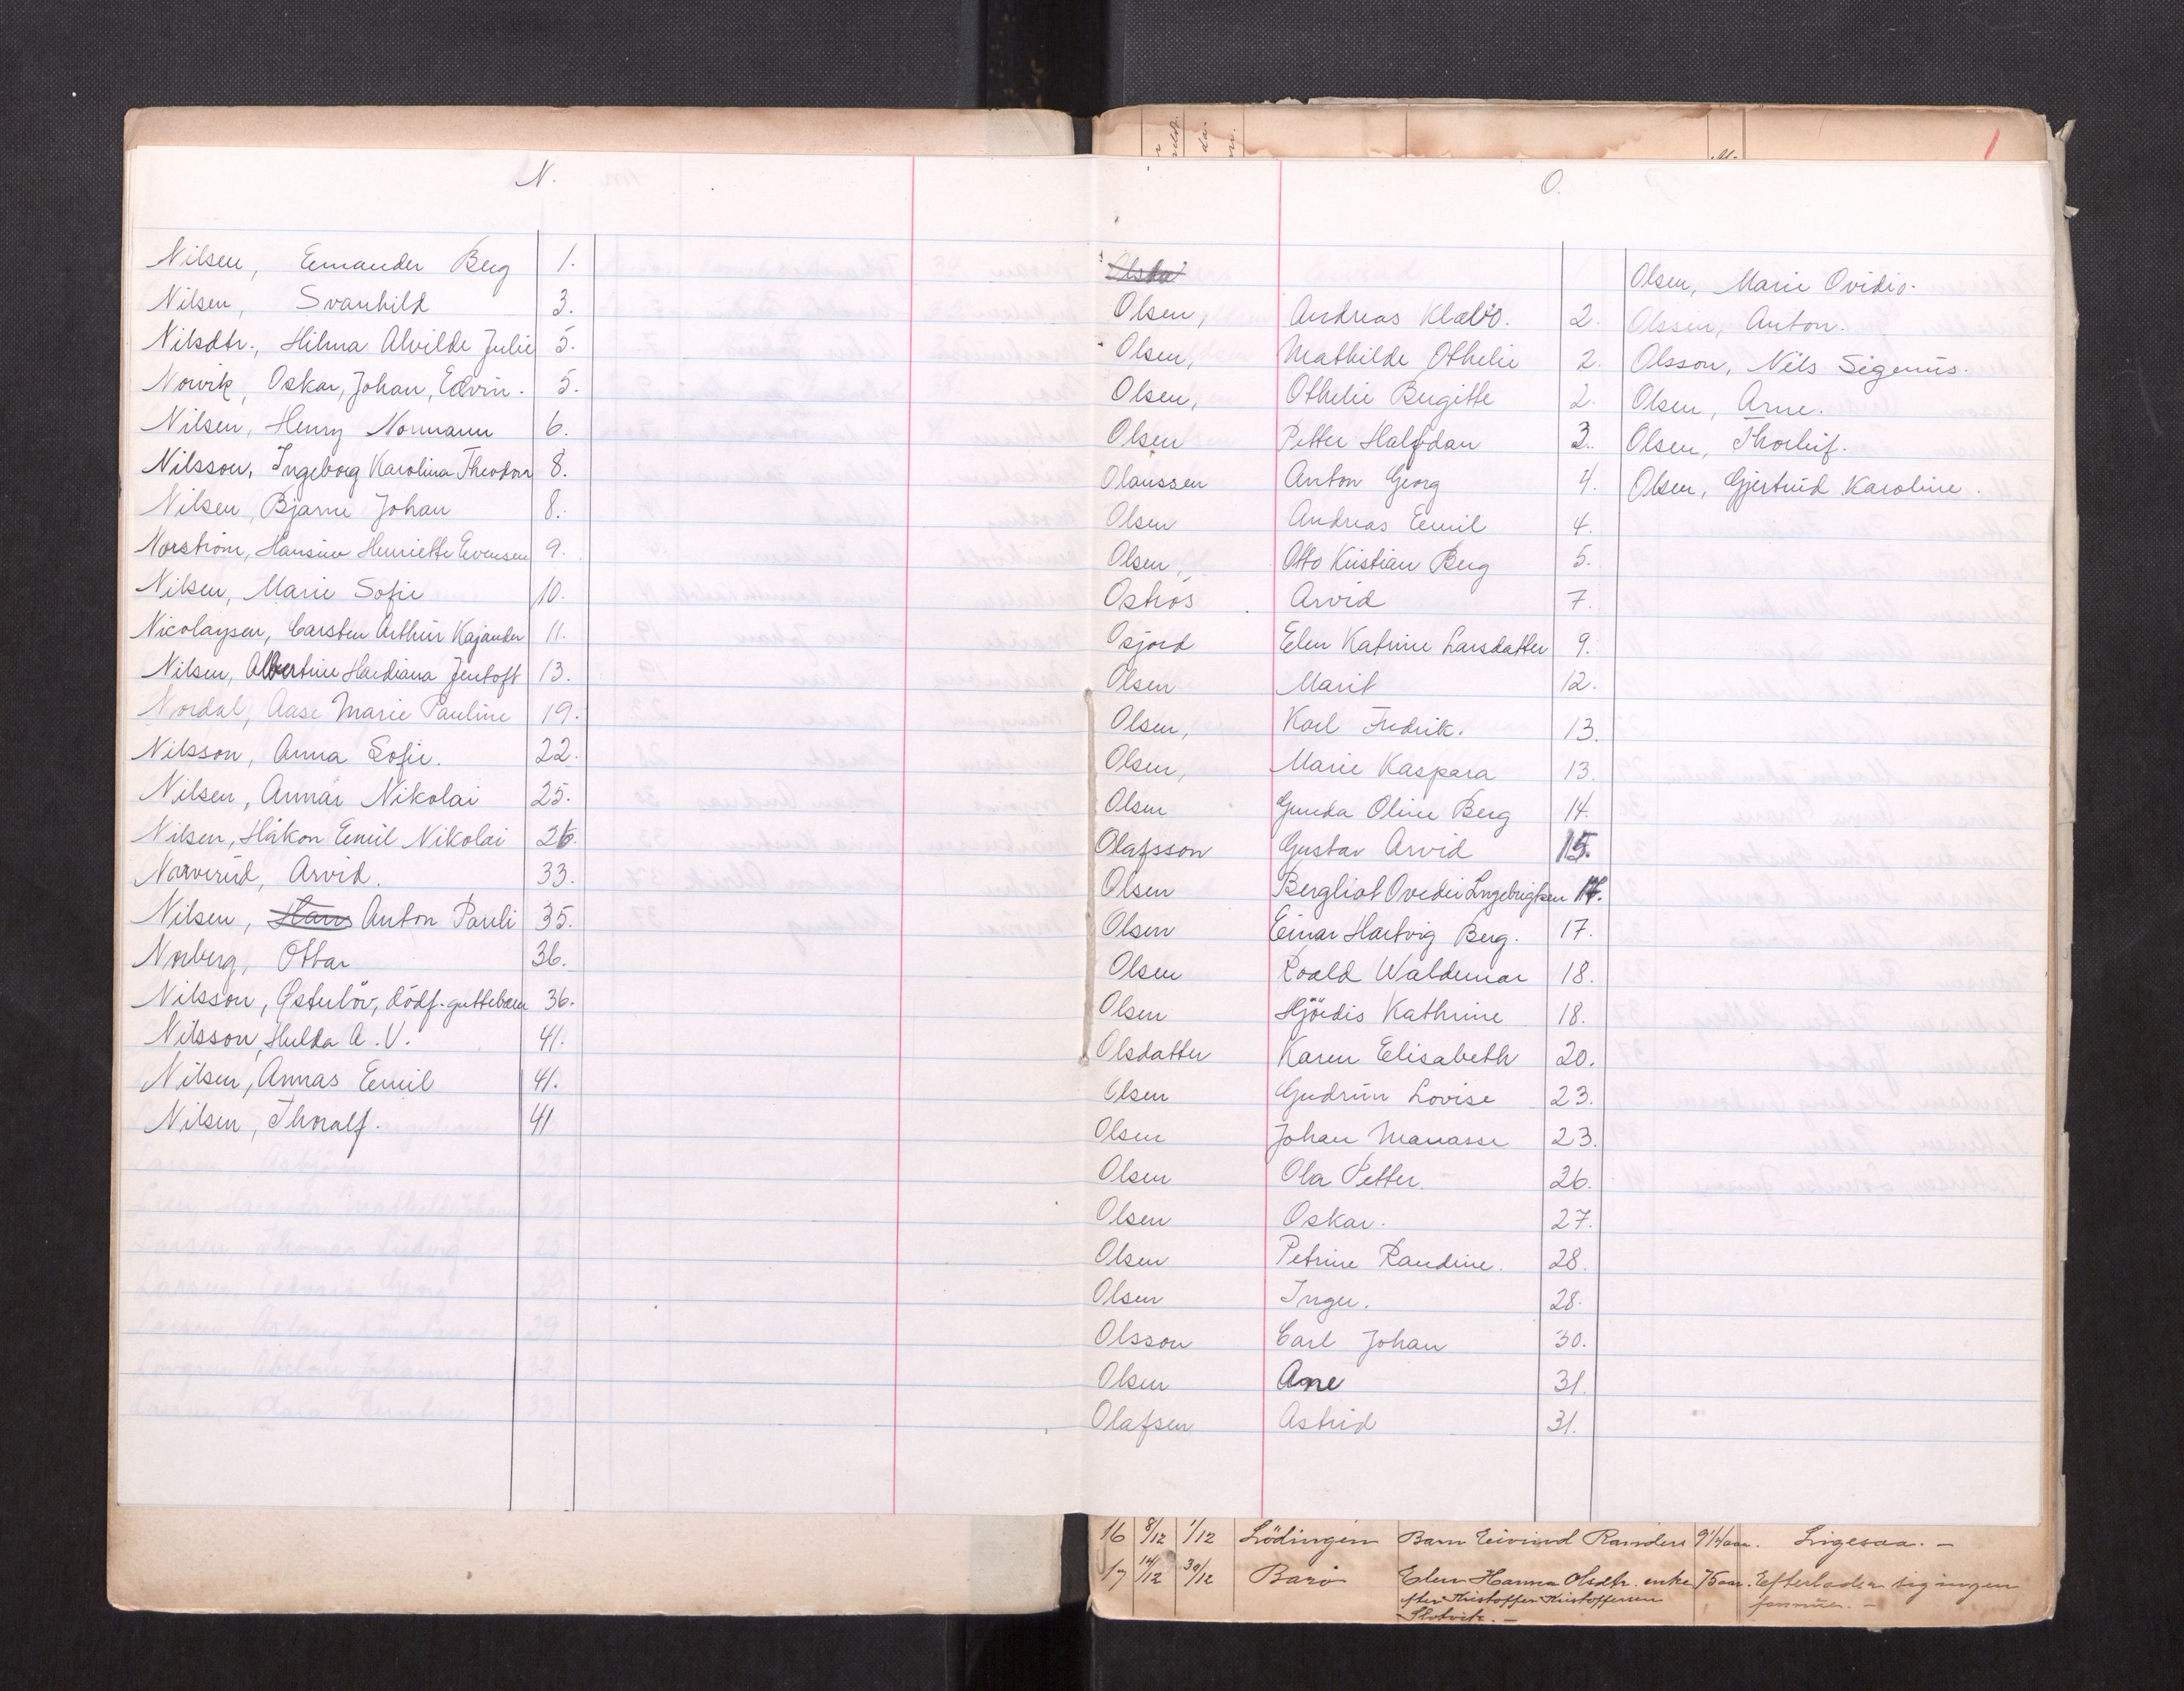 N.
Nilsen, Ernander Berg 1.
Nilsen, Svanhild 3.
Nilsdtr., Hilma Alvilde Julie 5.
Norvik, Oskar, Johan, Edvin. 5.
Nilsen, Henry Normann 6.
Nilsson, Ingeborg Karolina Theodora 8.
Nilsen, Bjarne Johan 8.
Norström, Hansine Henriette Evensen 9.
Nilsen, Marie Sofie 10.
Nicolaysen, Carsten Arthur Kajander 11.
Nilsen, Albertine Hardiana Jentoft 13.
Nordal, Aase Marie Pauline 19.
Nilsson, Anna Sofie. 22.
Nilsen, Annar Nikolai 25.
Nilsen, Håkon Emil Nikolai 26.
Narverud, Arvid. 33.
Nilsen, Hans Anton Pauli 35.
Norberg, Ottar 36.
Nilsson, Østerlöv, dödf. guttebarn 36.
Nilsson, Hulda A. V. 41.
Nilsen, Annas Emil 41.
Nilsen, Thoralf. 41
1
O.
Olsen, Andreas Klæbo. 2.
Olsen, Mathilde Othelie 2.
Olsen, Othelie Birgitte 2.
Olsen Petter Halfdan 3.
Olaussen Anton Georg 4.
Olsen Andreas Emil 4.
Olsen, Otto Kristian Berg 5.
Oströs Arvid 7.
Osjord Elen Katrine Larsdatter 9.
Olsen Marit 12.
Olsen, Karl Fredrik. 13.
Olsen, Marie Kaspara 13.
Olsen Gunda Oline Berg 14.
Olafsson Gustav Arvid 15.
Olsen Bergliot Ovedie Ingebrigtsen 17.
Olsen Einar Hartvig Berg. 17.
Olsen Roald Waldemar 18.
Olsen Hjördis Kathrine 18.
Olsdatter Karen Elisabeth 20.
Olsen Gudrun Lovise 23.
Olsen Johan Manasse 23.
Olsen Ola Petter. 26.
Olsen Oskar. 27.
Olsen Petrine Randine. 28.
Olsen Inger. 28.
Olsson Carl Johan 30.
Olsen Ane 31.
Olafsen Astrid 31.
Olsen, Marie Ovidie.
Olssen, Anton.
Olsson, Nils Sigenius.
Olsen, Arne.
Olsen, Thorleif.
Olsen, Gjertrud Karoline.
16 8/12 1/12 Lödingen Barn Eivind Randers 9 1/4 aar. Ligesaa. -
17 14/12 30/12 Barö Elen Hanna Olsdtr. enke 75 aar. Efterlader sig ingen
efter Kristoffer Kristoffersen formue. -
Slotvik. -